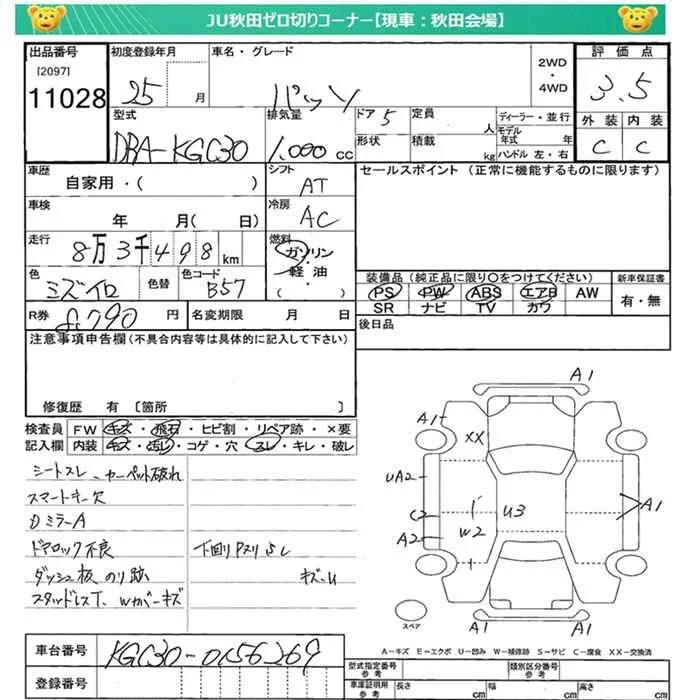 JU秋田ゼロ切りコーナー【現車：秋田会場】
出品番号
[2097]
11028
初度登録年月
25 月
車名・グレード
パッソ
2WD
・
4WD
評価点
3.5
外装 内装
C C
型式
DBA-KGC30
排気量
1,000 cc
ドア 5
形状
定員 人
積載 kg
ディーラー・並行
モデル年式 年
ハンドル 左・右
車歴
自家用・( )
車検
年 月( 日)
走行
8万3千498km
色
ミズイロ
色替
色コード
B57
R券
8,790 円
名変期限 月 日
シフト
AT
冷房
AC
燃料
ガソリン
・
軽油
・
( )
セールスポイント (正常に機能するものに限ります)
装備品 (純正品に限り○をつけてください)
PS PW ABS エアB AW
SR ナビ TV カワ
新車保証書
有・無
後日品
注意事項申告欄(不具合内容等は具体的に記入して下さい)
修復歴 有 〔箇所 〕
検査員記入欄
FW キズ・飛石・ヒビ割・リペア跡・×要
内装 キズ・汚レ・コゲ・穴・スレ・キレ・破レ
シートスレ、カーペット破れ
スマートキー欠
ミラーA
ドアロック不良
ダッシュ板、のり跡
スタッドレスT、Wカバーキズ
下回り
キズ
A1
A1
XX
UA2
C2
A2
W2
U3
A1
A1
A1
スペア
A－キズ E－エクボ U－凹み W－補修跡 S－サビ C－腐食 XX－交換済
車台番号
KGC30-0156269
登録番号
型式指定番号
参考
類別区分番号
参考
車庫証明用
参考
長さ cm 幅 cm 高さ cm